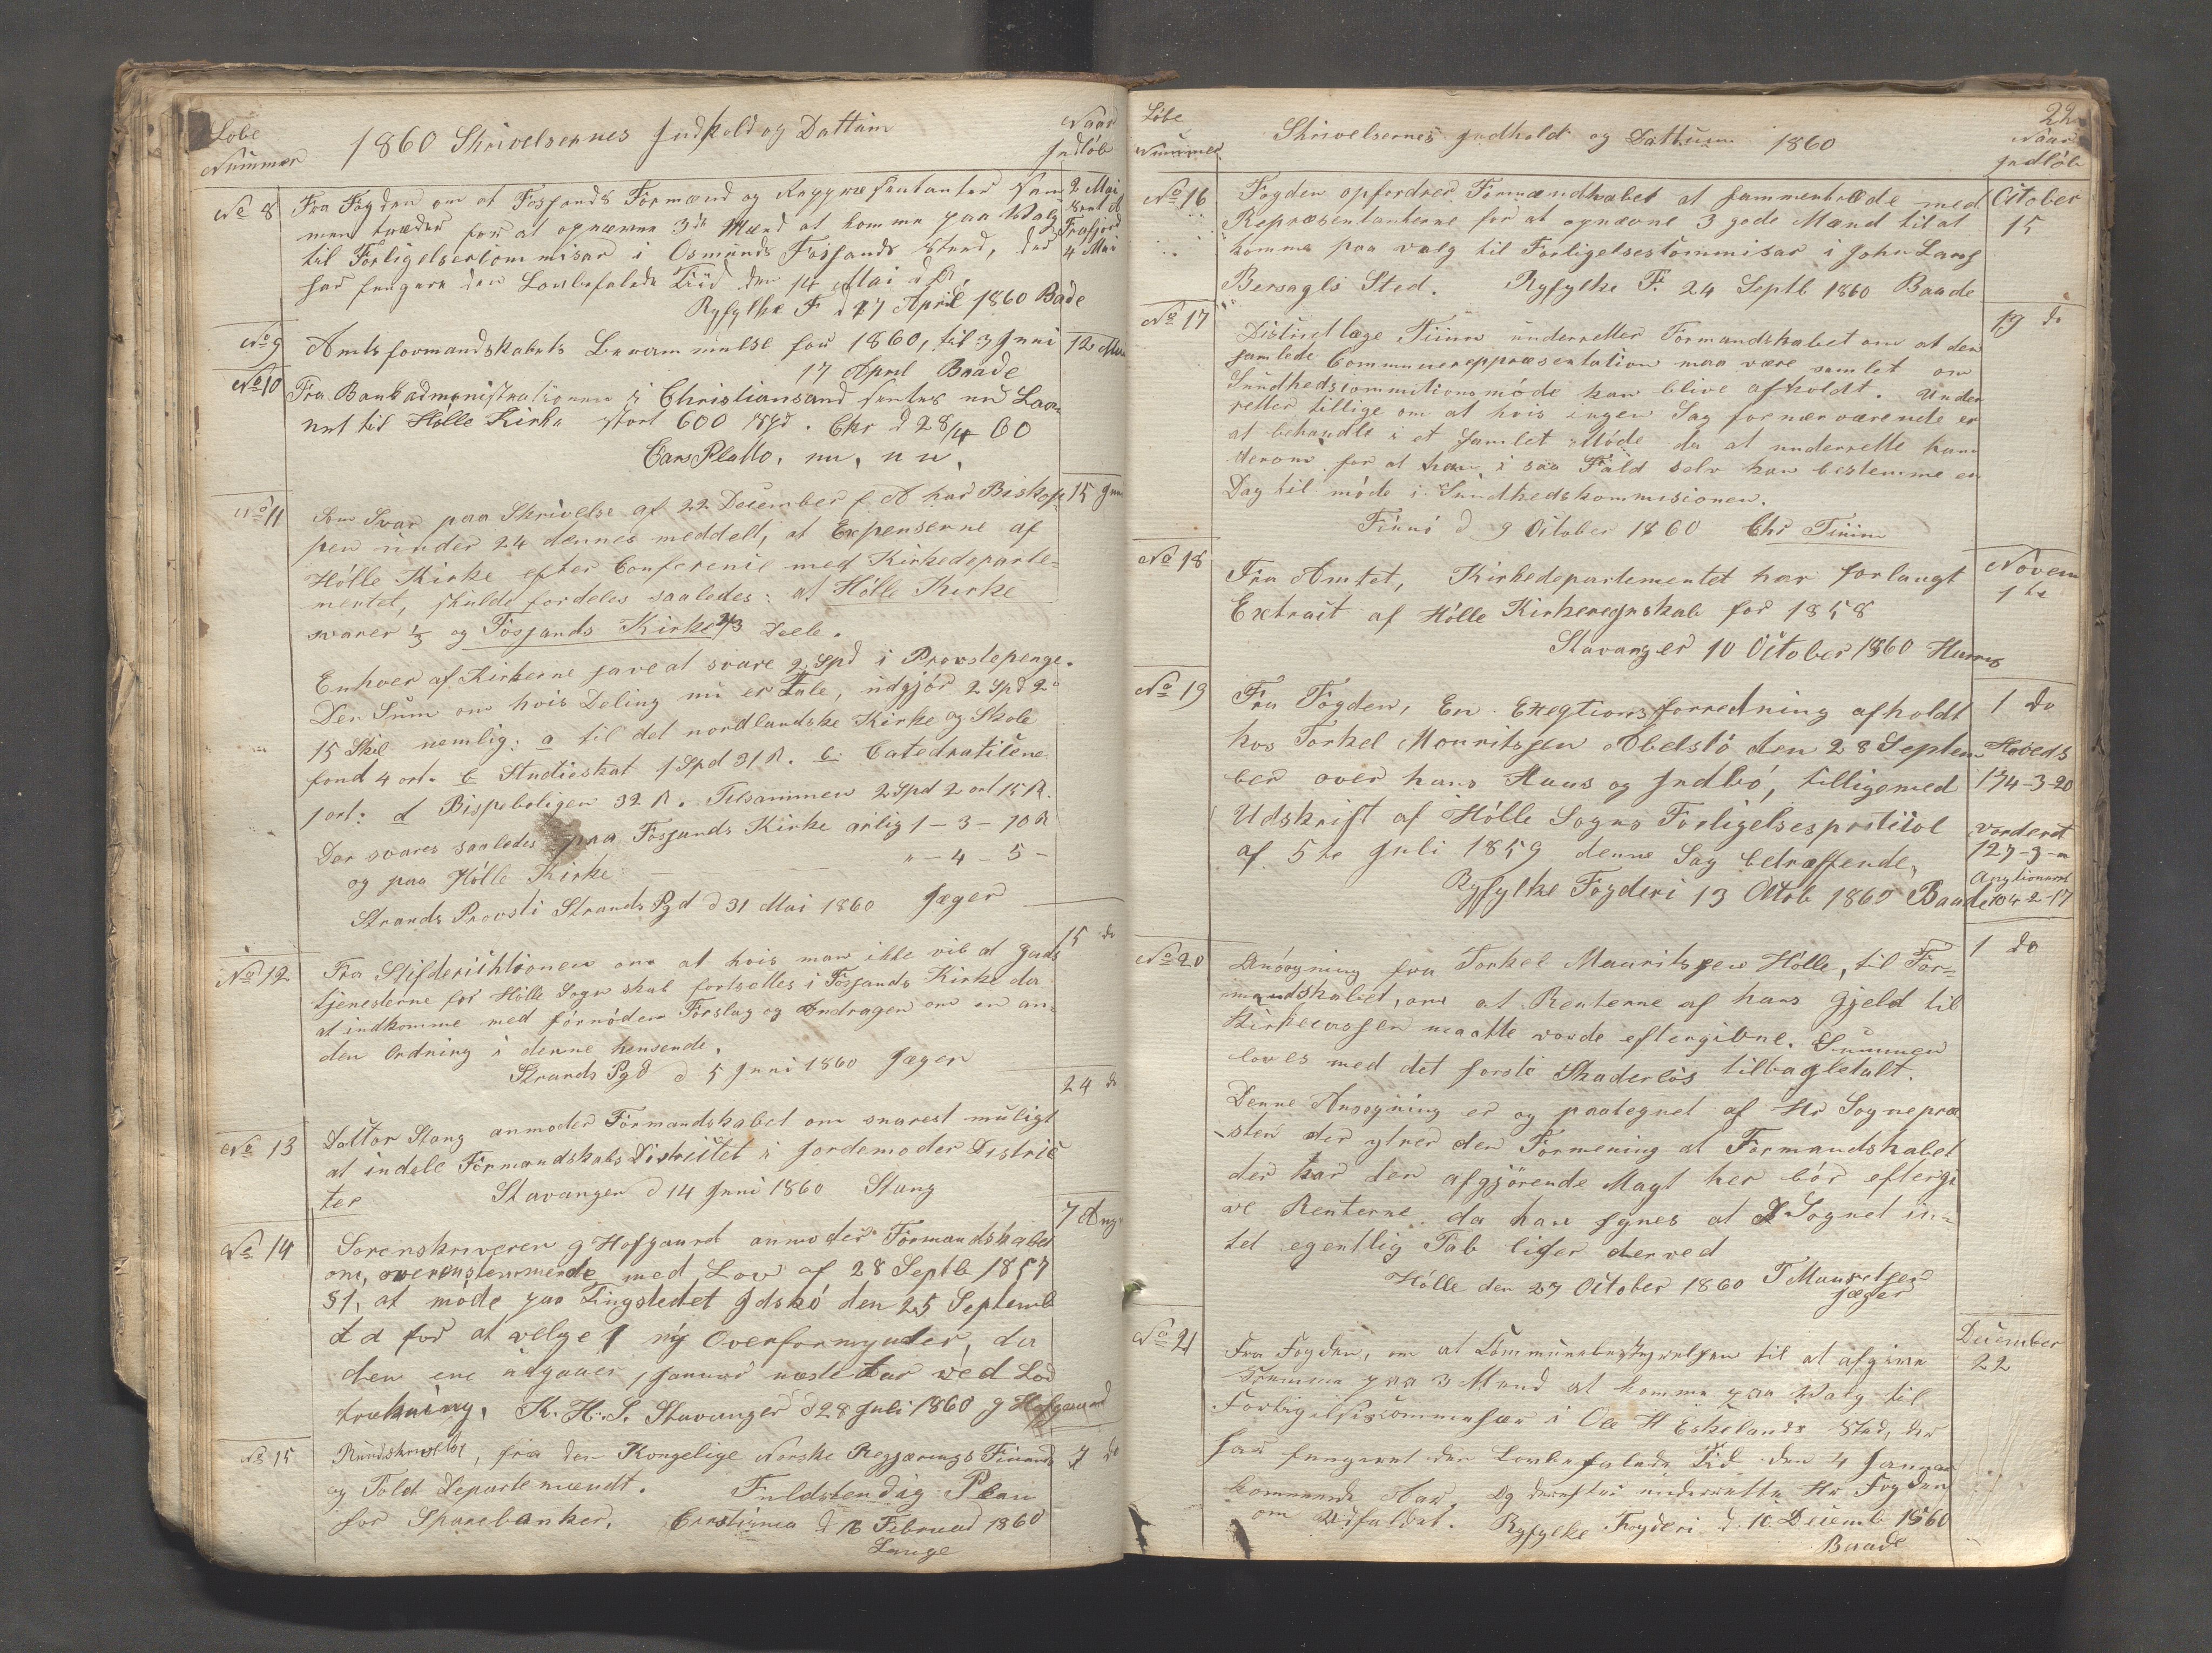 Løbe
Nummer
1860 Skrivelsernes Indhold og Dattum
Naar
Indløb
No 8
Fra Fogden om at Fosjands Formænd og Reppræsentanter sam
2 Mai
mentræder for at opnævne 3de Mænd at komme paa Valg
sent
til Forligelsescommisær i Osmunds Fosjands Sted, der
Frafjord
4 Mai
har fungere den Lovbefalede Tiid den 14 Mai d A.
Ryfylke F d 17 April 1860 Baade
No 9
Amtsformandskabets Besammelse for 1860, til 3 Juni
12 Mai
17 April Baade
No 10
Fra Bankadministrationen i Christiansand sentes et Laan
net til Hølle Kirke stort 600 Spd. Chr d 28/4 60
Cars Platto, m, n n,
No 11
Som Svar paa Skrivelse af 22 December f A har Biskop
15 Juni
pen under 24 dennes meddelt, at Expenserne af
Hølle Kirke efter Conference med Kirkedeparte=
mentet, skulde fordeles saaledes: at Hølle Kirke
svarer 1/3 og Fosjands Kirke 2/3 Deele.
Enhver af Kirkerne have at svare 2 Spd i Provstepenge.
Den Sum om hvis Deling nu er Tale, udgjør 2 Spd 2o
15 Skil nemlig: a til det nordlandske Kirke og Skole
fond 4 ort. b Studieskat 1 Spd 31 s. c Catedraticum
1 ort: d Bispeboligen 32 s. Tilsammen 2 Spd 2 ort 15 s.
Der svares saaledes paa Fosjands Kirke arlig 1 – 3 – 10 s
og paa Hølle Kirke — " – 4 – 5 –
Strands Provsti Strands Pgd d 31 Mai 1860 Jæger
No 12
Fra Stifderichtionen om at hvis man ikke vil at Guds
15 do
tjenesterne for Hølle Sogn skal fortsettes i Fosjands Kirke da
at indkomme med fornøden Forslag og Andragen om en an=
den Ordning i denne henseende.
Strands Pgd d 5 Juni 1860 Jæger
No 13
Doctor Stang anmoder Formandskabet om snarest muligt
24 do
at indele Formandskabs Districtet i Jordemoder Distric
ter Stavanger d 14 Juni 1860 Stang
No 14
Sorenskriveren G Hofgaard anmoder Formandskabet
7 Aug
om, overenstemmende med Lov af 28 Septb 1857
§ 1, at møde paa Tingstedet Idsø den 25 Septemb
d A for at velge 1 ny Overformynder, da
den ene udgaaer 1 Januar næste Aar ved Lod
trækning. K. H. S. Stavanger d 28 Juli 1860 G Hofgaard
No 15
Rundskrivelse, fra den Kongelige Norske Regjærings Finants
7 do
og Told Departemændt. Fuldstendig Plan
for Sparebanker. Christiania d 16 Februar 1860
Lange
Løbe
Nummer
Skrivelsernes Indhold og Dattum 1860
22
Naar
Indløb
No 16
Fogden opfordrer Formændskabet at sammentræde med
October
Repræsentanterne for at opnævne 3 gode Mænd til at
15
komme paa valg til Forligelsescommisær i John Lars
Bersagls Sted. Ryfylke F. 24 Septb 1860 Baade
No 17
Districtlæge Finne underretter Formandskabet om at den
19 do
samlede Communereppræsentation maa være samlet om
Sundhedscommitionsmøde kan blive afholdt. Under
retter tillige om at hvis ingen Sag for nærværende er
at behandle i et samlet Møde da at underrette ham
derom for at han i saa Fald selv kan bestemme en
Dag til møde i Sundhedskommisionen.
Finnø d 9 October 1860 Chr Finne
No 18
Fra Amtet, Kirkedepartementet har forlangt
Novem
1te
Extract af Hølle Kirkeregnskab for 1858
Stavanger 10 October 1860 Harris
No 19
Fra Fogden, En Exeqtionsforredning afholdt
1 do
hos Torkel Mouritsen Abelstø den 28 Septem
Hoveds
ber over hans Huus og Indbo, tilligemed
174–3–20
Udskrift af Hølle Sogns Forligelsesprotocol
vorderet
af 5te Juli 1859 denne Sag betræffende,
127–3–
Auqtioneret
Ryfylke Fogderi 13 Octob 1860 Baade
104–2–17
No 20
Ansøgning fra Torkel Mauritsen Hølle, til For=
1 do
mandskabet, om at Renterne af hans Gjeld til
Kirkecassen maatte vorde eftergivne. Summen
loves med det første Skadesløs tilbagletalt.
Denne Ansøgning er og paategnet af Hr Sognepræ
sten der ytrer den Formening at Formandskabet
der har den afgjørende Magt her bør eftergi
ve Renterne da han synes at Sognet in=
tet egentlig Tab lider derved
Hølle den 27 October 1860 T Mauretsen
Jæger
No 21
Fra Fogden, om at Communebestyrelsen til at afgive
December
22
Stemme paa 3 Mænd at komme paa Valg til
Forligelsescommisær i Ole H Eskelands Sted, der
har fungeret den Lovbefalede Tid den 4 Januar
kommende Aar. Og derefter underrette Hr Fogden
om Udfaldet. Ryfylke Fogderi d. 10 Decemb 1860
Baade